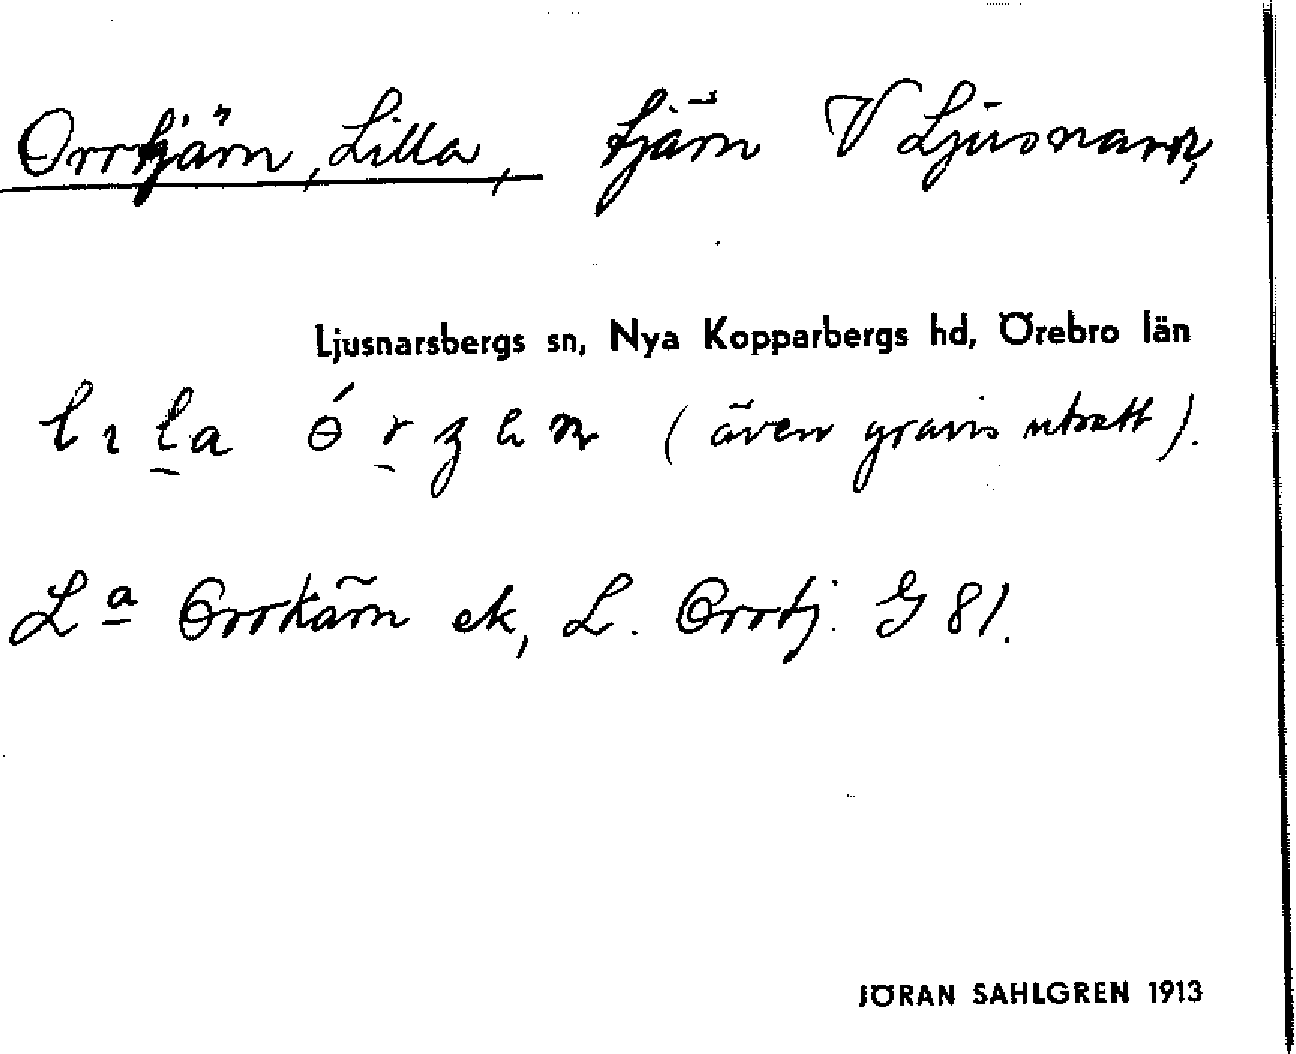 Orrtjärn, Lilla, tjärn V Ljusnaren,
Ljusnarsbergs sn, Nya Kopparbergs hd, Örebro län
(även gravis uttalt).
Lª Orrkärn ek, L. Orrtj. G 81.
JÖRAN SAHLGREN 1913